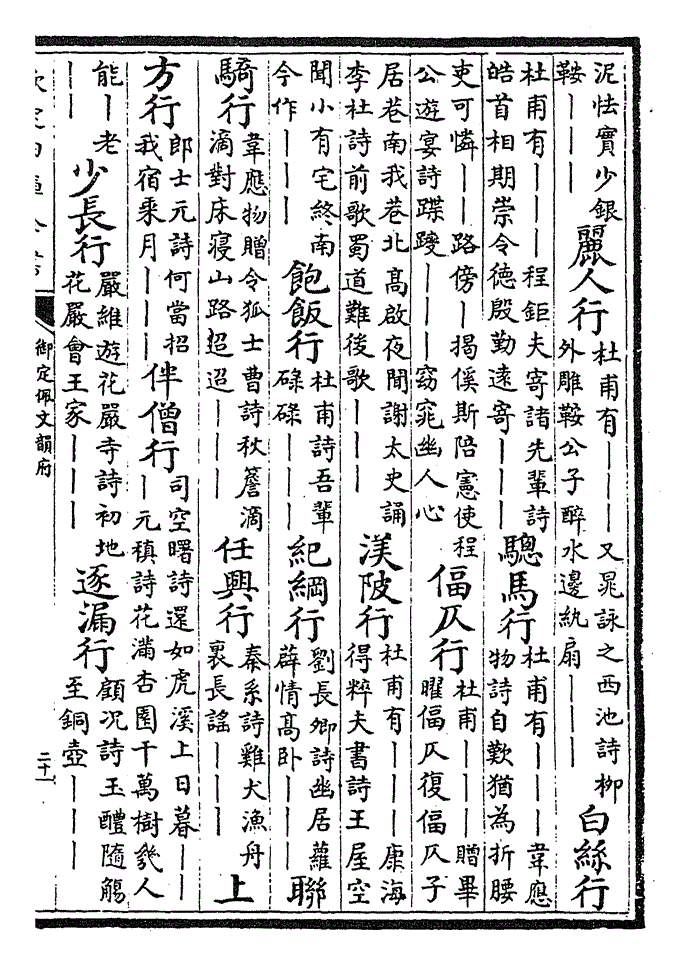 泥怯實少銀鞍｜｜｜麗人行杜甫有｜｜｜又晁詠之西池詩柳外雕鞍公子醉水邊紈扇｜｜｜白絲行
杜甫有｜｜｜程鉅夫寄諸先輩詩皓首相期崇令德殷勤遠寄｜｜｜驄馬行杜甫有｜｜｜韋應物詩自歎猶為折腰
吏可憐｜｜路傍｜揭傒斯陪憲使程公遊宴詩蹀躞｜｜｜窈窕幽人心偪仄行杜甫｜｜｜贈畢曜偪仄復偪仄子
居巷南我巷北高啟夜聞謝太史誦李杜詩前歌蜀道難後歌｜｜｜渼陂行杜甫有｜｜｜康海得粹夫書詩王屋空
聞小有宅終南今作｜｜｜飽飯行杜甫詩吾輩碌碌｜｜｜紀綱行劉長卿詩幽居蘿薜情高卧｜｜｜聯
騎行韋應物贈令狐士曹詩秋簷滴滴對床寢山路迢迢｜｜｜任興行秦系詩雞犬漁舟裏長謡｜｜｜上
方行郎士元詩何當招我宿乘月｜｜｜伴僧行司空曙詩還如虎溪上日暮｜｜｜元稹詩花滿杏園千萬樹幾人
能｜老｜｜少長行嚴維遊花嚴寺詩初地花嚴會王家｜｜｜逐漏行顧況詩玉醴隨觴至銅壺｜｜｜
御定佩文韻府
二十一